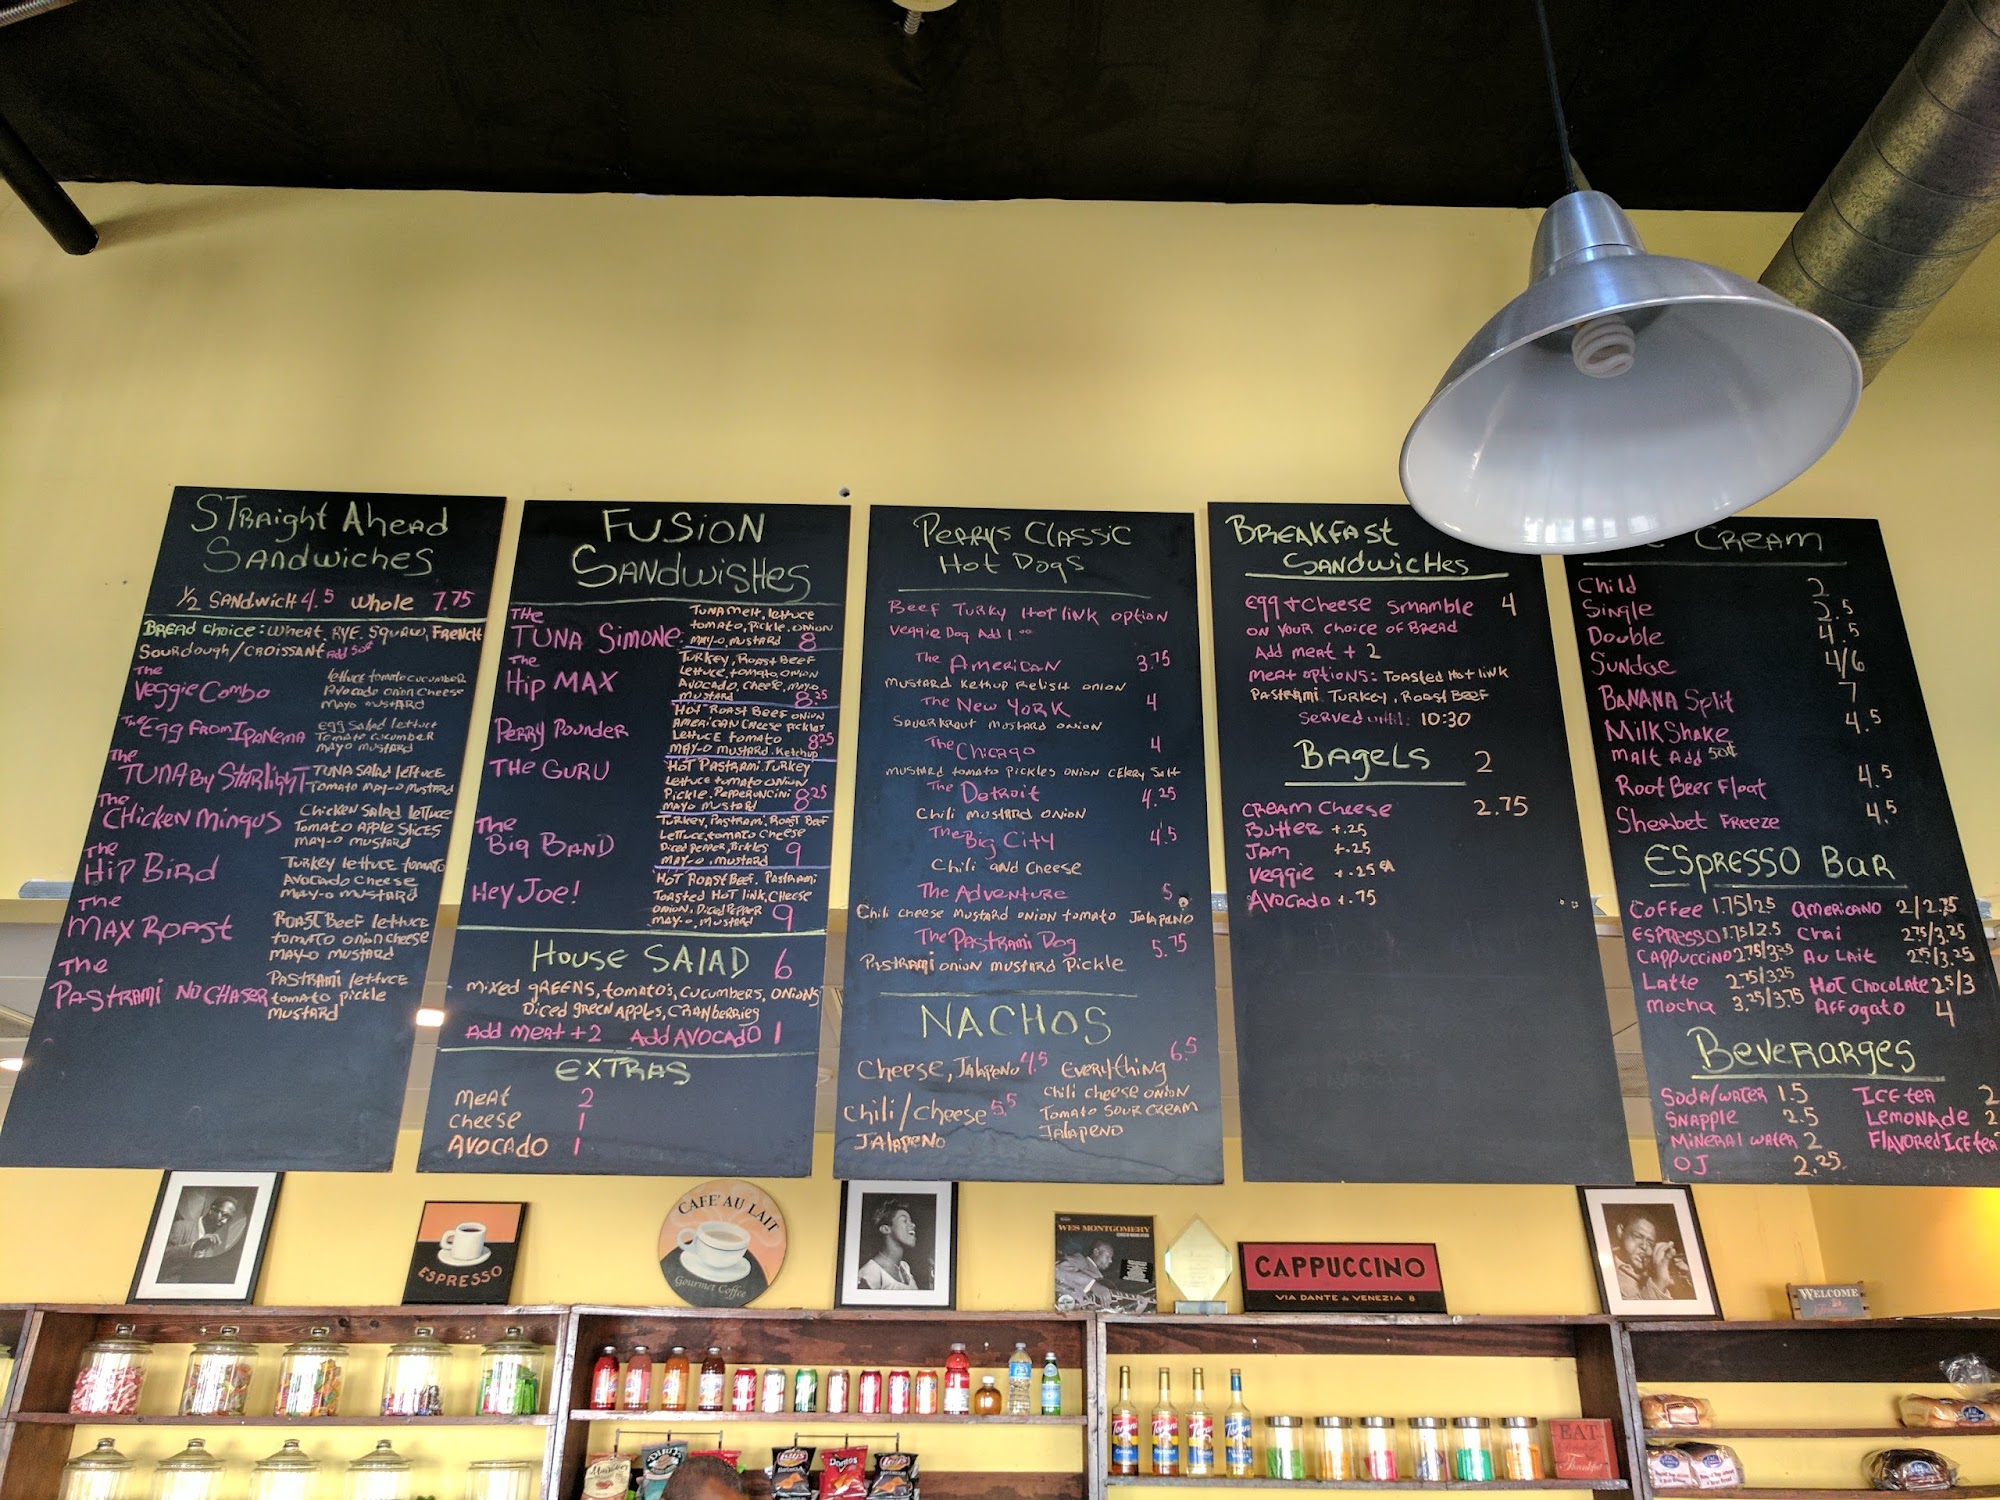 STraight Ahead
Sandwiches
1/2 SANDWICH 4.5 whole 7.75
BREAD choice: wheat, RYE, SquAW, FRENCH
Sourdough/CROISSANT Add 50¢
The
Veggie Combo
lettuce tomato cucumber
Avocado onion Cheese
Mayo mustARD
The EGG FROM IPANEMA
egg Salad lettuce
Tomato cucumbeR
mayo mustaRD
The
TUNA By StarlighT
TUNA Salad lettuce
Tomato may-o mustaRD
The
CHicken Mingus
Chicken Salad lettuce
Tomato Apple Slices
may-o mustaRD
The
HiP BIRD
Turkey lettuce tomato
Avocado Cheese
May-o mustaRD
The
MAX ROAST
ROAST Beef lettuce
tomato onion cheese
may-o mustaRD
The
PASTRAMI NO CHASER
PASTRAMI lettuce
tomato pickle
mustaRD
FUSION
SANDWISHES
THe
TUNA Simone:
TUNA melt, lettuce
tomato, pickle, onion
MAY-O MUSTARD 8
The
Hip MAX
TURKEY, ROAST BEEF
lettuce, tomato, onion
Avocado, cheese, mayo
mustard 8.25
PeRRy Pounder
HOT ROAST BEEF ONION
AMERICAN CHEESE pickles
LettuCE tomato 8.25
MAY-O MUSTARD. Ketchup
THe GURU
HOT PASTRAMI. TURKEY
lettuce tomato onion
Pickle. PePPERUNCINI 8.25
mayo mustard
The
Big BAND
TURKEY, PASTRAMI, ROAST BEEF
LETTUCE, tomato cheese
Diced pepper, pickles
MAY-O, MUSTARD 9
Hey JOE!
HOT ROAST BEEF. PASTRAMI
Toasted HOT link, CHEESE
ONION, Diced PePPER
MAY-O, MUSTARD 9
HOUSE SALAD 6
mixed GREENS, tomato's, CUCUMBERS, ONIONS
Diced GREEN APPles, CRANberries
Add meat +2 Add AVOCADO 1
EXTRAS
MEAT 2
CHEESE 1
AVOCADO 1
PeRRys Classic
Hot Dogs
Beef Turky Hot link option
Veggie Dog Add 1.00
The AmericaN 3.75
mustard Ketchup Relish onion
The New YORK 4
Sauerkraut mustard onion
The Chicago 4
mustard tomato pickles onion CElery Salt
The Detroit 4.25
Chili mustard onion
The Big City 4.5
Chili and Cheese
The Adventure 5
Chili cheese mustard onion tomato Jalapeno
The Pastrami Dog 5.75
Pastrami onion mustard Pickle
NACHOS
Cheese, Jalapeno 4.5
Everything 6.5
Chili cheese onion
Tomato Sour CREAM
Jalapeno
Chili/Cheese 5.5
Jalapeno
BREAKfast
SANDWICHes
egg + Cheese Srhamble 4
ON YOUR choice of BREAD
Add meat + 2
meat options: Toasted Hot link
PASTRAMI TURKEY, Roast Beef
Served until: 10:30
BAgeLs 2
CREAM Cheese 2.75
Butter +.25
JAM +.25
Veggie +.25 EA
AVOCADO +.75
CREAM
Child 2
Single 2.5
Double 4.5
Sundae 4/6
BANANA Split 7
Milk Shake 4.5
malt Add 50¢
Root Beer Float 4.5
Sherbet FREEZE 4.5
ESpresso BAR
Coffee 1.75/2.5 AmericANO 2/2.75
ESPRESSO 1.75/2.5 Chai 2.75/3.25
CAPPUCCINO 2.75/3.25 Au LAit 2.5/3.25
Latte 2.75/3.25 Hot Chocolate 2.5/3
mocha 3.25/3.75 Affogato 4
Beverarges
Soda/water 1.5 ICE tea 2
Snapple 2.5 LEMONADE 2
Mineral water 2 Flavored Ice tea
OJ 2.25
ESPRESSO
CAFE' AU LAIT
Gourmet Coffee
WES MONTGOMERY
CAPPUCCINO
VIA DANTE & VENEZIA 8
WELCOME
Doritos
Lay's
Torani
Torani
Torani
Torani
EAT
Thankful